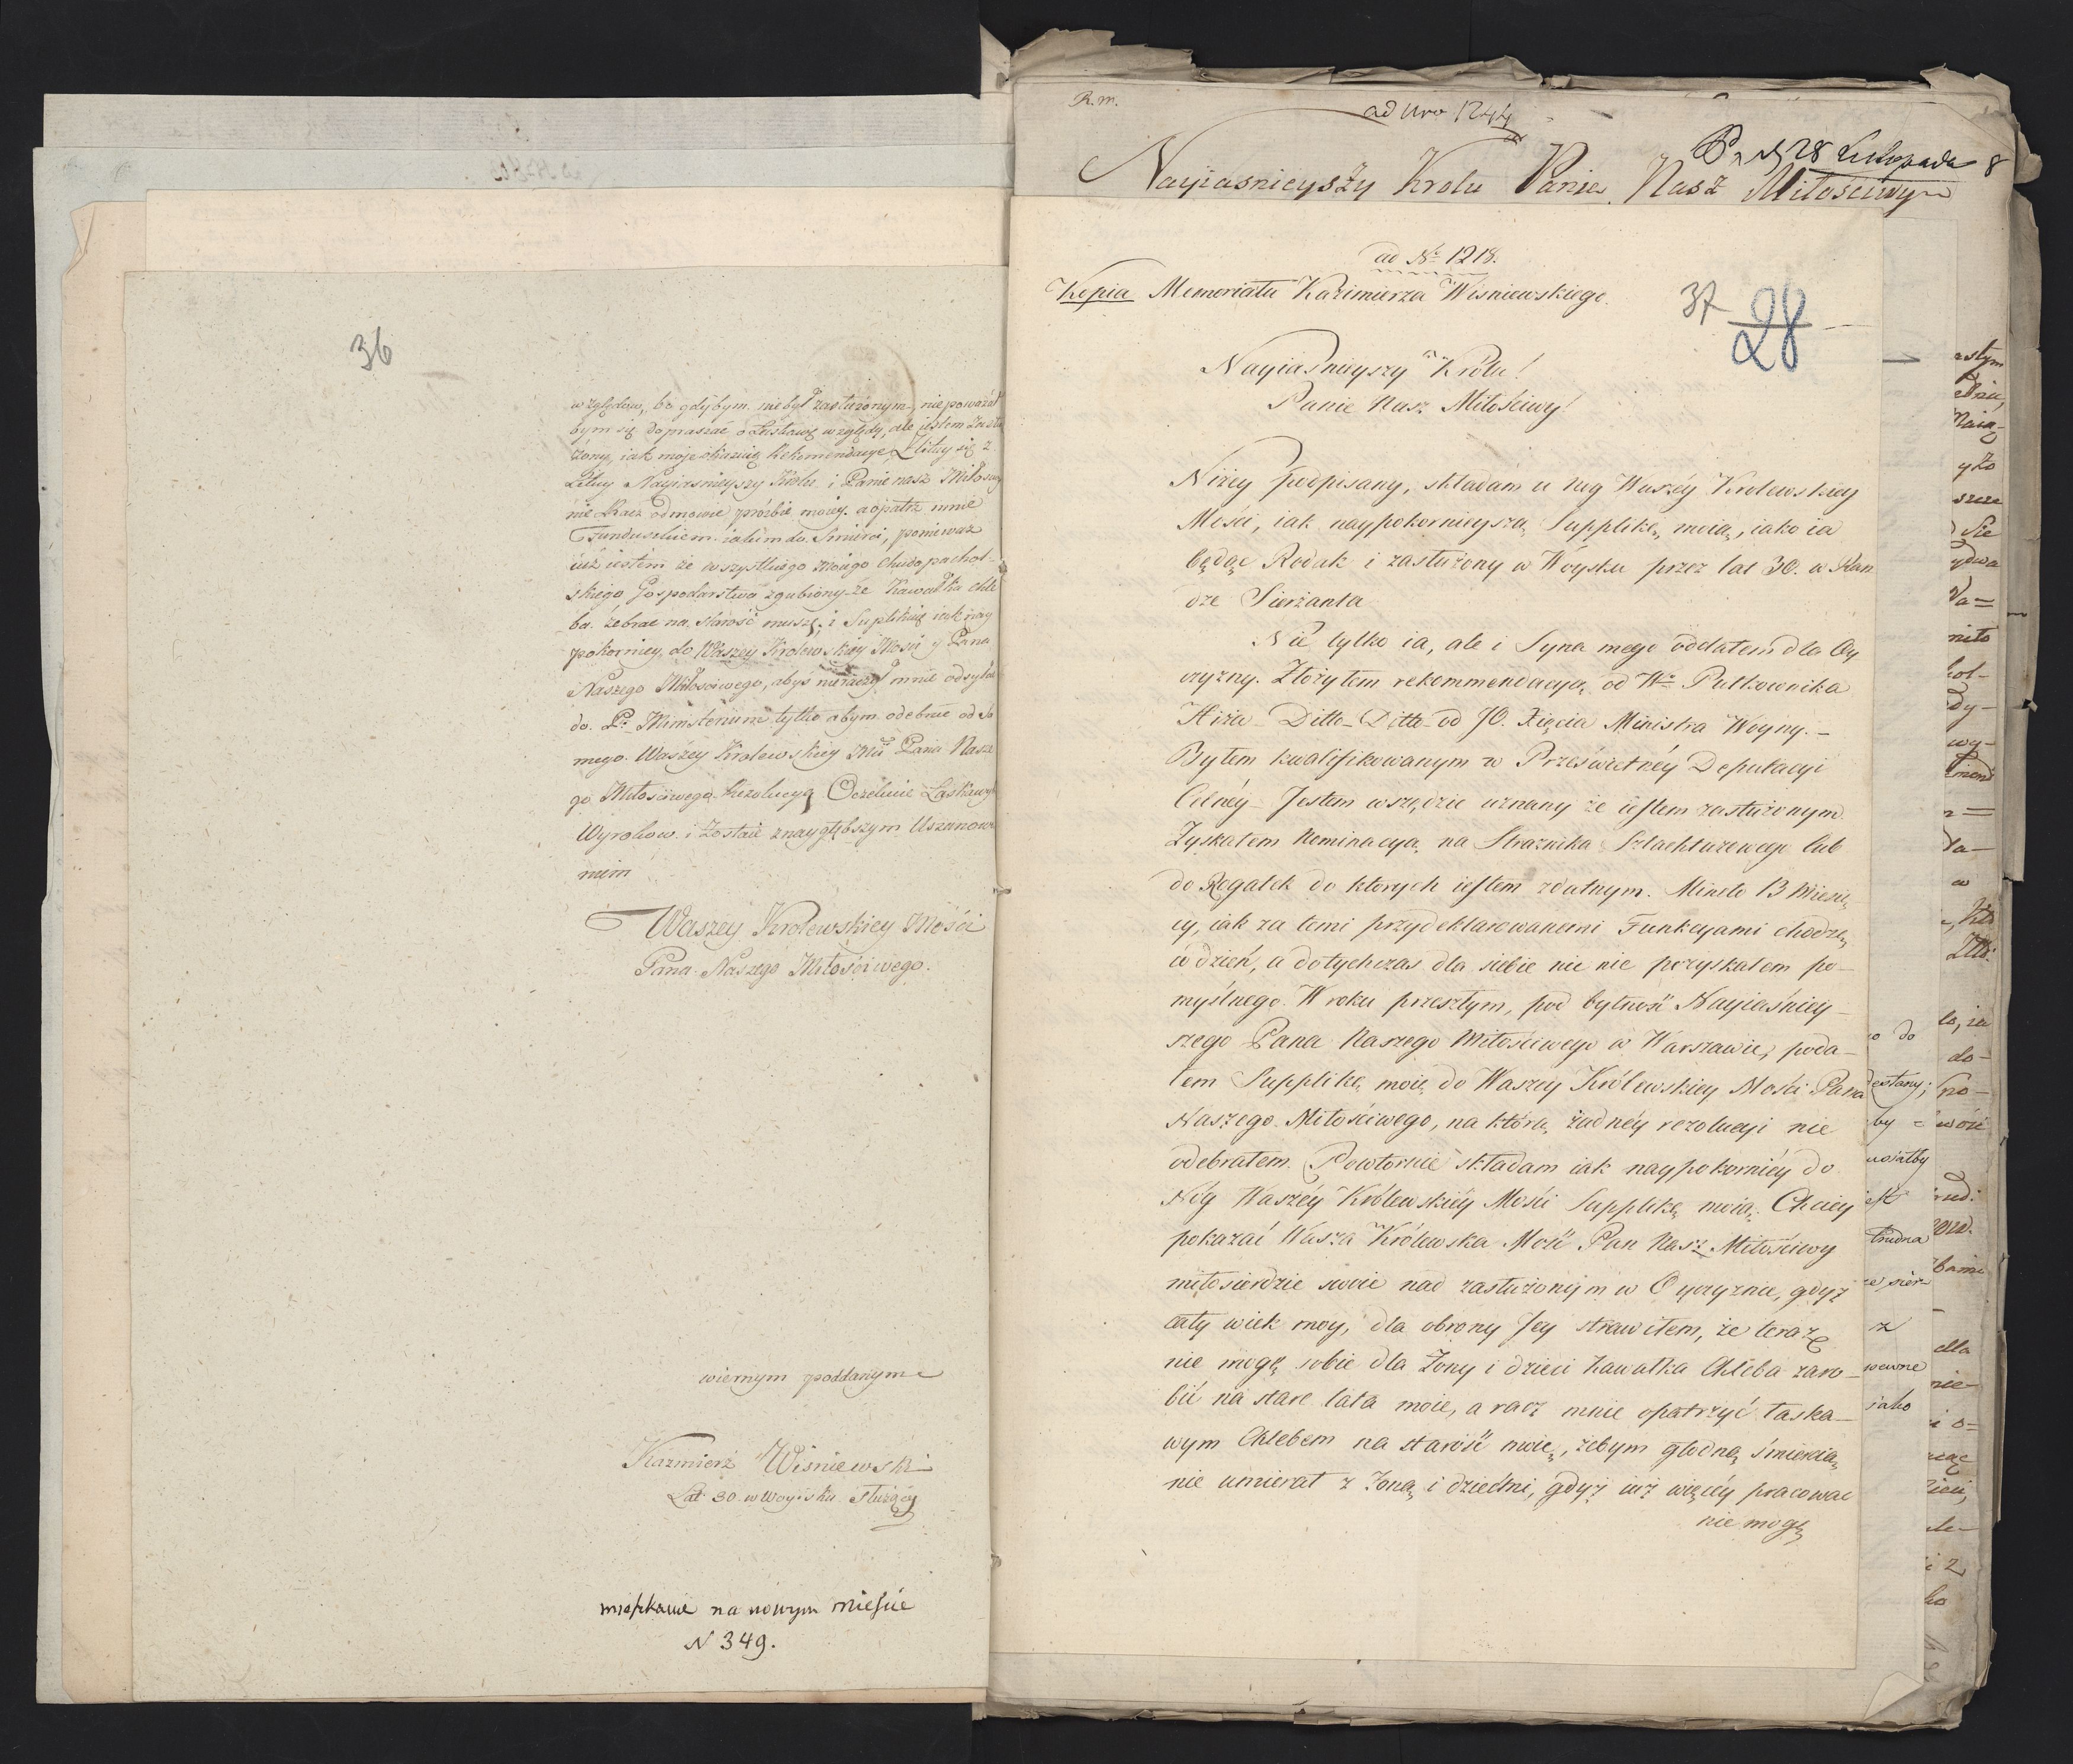 36
względow, bo gdybym nie był zasłużonym, nie poważał
bym się dopraszać o Łaskawę względy, ale jestem zasłu
żony, iak moje okazuią Rekomendacye, Lituy się z
Lituy Nayiasnieyszy Królu i Panie nasz Miłosciwy
nie Racz odmowić proźbie moiey a opatrz mnie
Funduszikiem iakim do Smierci, poniewaz
iuż iestem ze wszystkiego moiego chudopachol-
skiego Gospodarstwa zgubiony że Kawałka chle
ba żebrac na starość muszę, i Suplikuię iak nay
pokorniey do Waszey Krolewskiey Mosci y Pana
Naszego Miłosciwego, abyś nieraczył mnie odsyłać
do Pr. Ministerium tylko abym odebrał od Sa
mego Waszey Krolewskiey Mci Pana Nasze
go Miłosciwego Rezolucyą Oczekuie Łaskawych
Wyrokow i Zostaie znaygłębszym Uszanowa
niem
Waszey Krolewskiey Mości
Pana Naszego Miłościwego.
wiernym poddanym
Kazmierz Wisniewski
Lat 30 w Woysku Służący
mieszkanie na nowym mieście
N 349.
R. m.
ad Nro 1244
Pr. d. 28 Listopada 8
Nayiasnieyszy Krolu Panie Nasz Miłościwy
ad No 1218.
Kopia Memoriału Kazimierza Wisniewskiego.
37 28
28
Nayiaśnieyszy Królu!
Panie Nasz Miłościwy!
Niżéy podpisany, składam u nug Waszéy Krolewskiey
Mości, iak naypokornieyszą Supplikę moią, iako ia
będąc Rodak i zasłużony w Woysku przez lat 30. w Ran
dze Sierżanta
Nie tylko ia, ale i Syna mego oddałem dla Oy
czyzny. Złożyłem rekommendacyą od Wo Pułkownika
Hiża Ditto Ditto od JO. Xięcia Ministra Woyny. –
Byłem kwalifikowanym w Prześwietnéy Deputacyi
Celnéy – Jestem wszędzie uznany że iestem zasłużonym
Zyskałem Nominacyą na Straznika Szlachtuzowego lub
do Rogatek do ktorych iestem zdatnym. Mineło 13 Miesię
cy, iak za temi przydeklarowanemi Funkcyami chodzę
w dzień, a dotychczas dla siebie nic nie pozyskałem po–
myślnego. W roku przeszłym, pod bytność Nayiaśniey–
szego Pana Naszego Miłościwego w Warszawie, poda–
łem Supplikę moię do Waszey Królewskiey Mości Pana
Naszego Miłościwego, na którą żadnéy rezolucyi nie
odebrałem. Powtornie składam iak naypokorniéy do
Nóg Waszéy Królewskiéy Mości Supplikę moią. Chciey
pokazać Wasza Królewska Mość Pan Nasz Miłościwy
miłosierdzie swoie nad zasłużonym w Oyczyznie, gdyż
cały wiek moy, dla obrony Jey strawiłem, że teraz
nie mogę sobie dla Zony i dzieci kawałka Chleba zaro–
bić na stare lata moie, a racz mnie opatrzyć łaska–
wym Chlebem na starość moię, żebym głodną śmiercią
nie umierał z Zoną i dziećmi, gdyż iuż więcéy pracowac
nie mogę